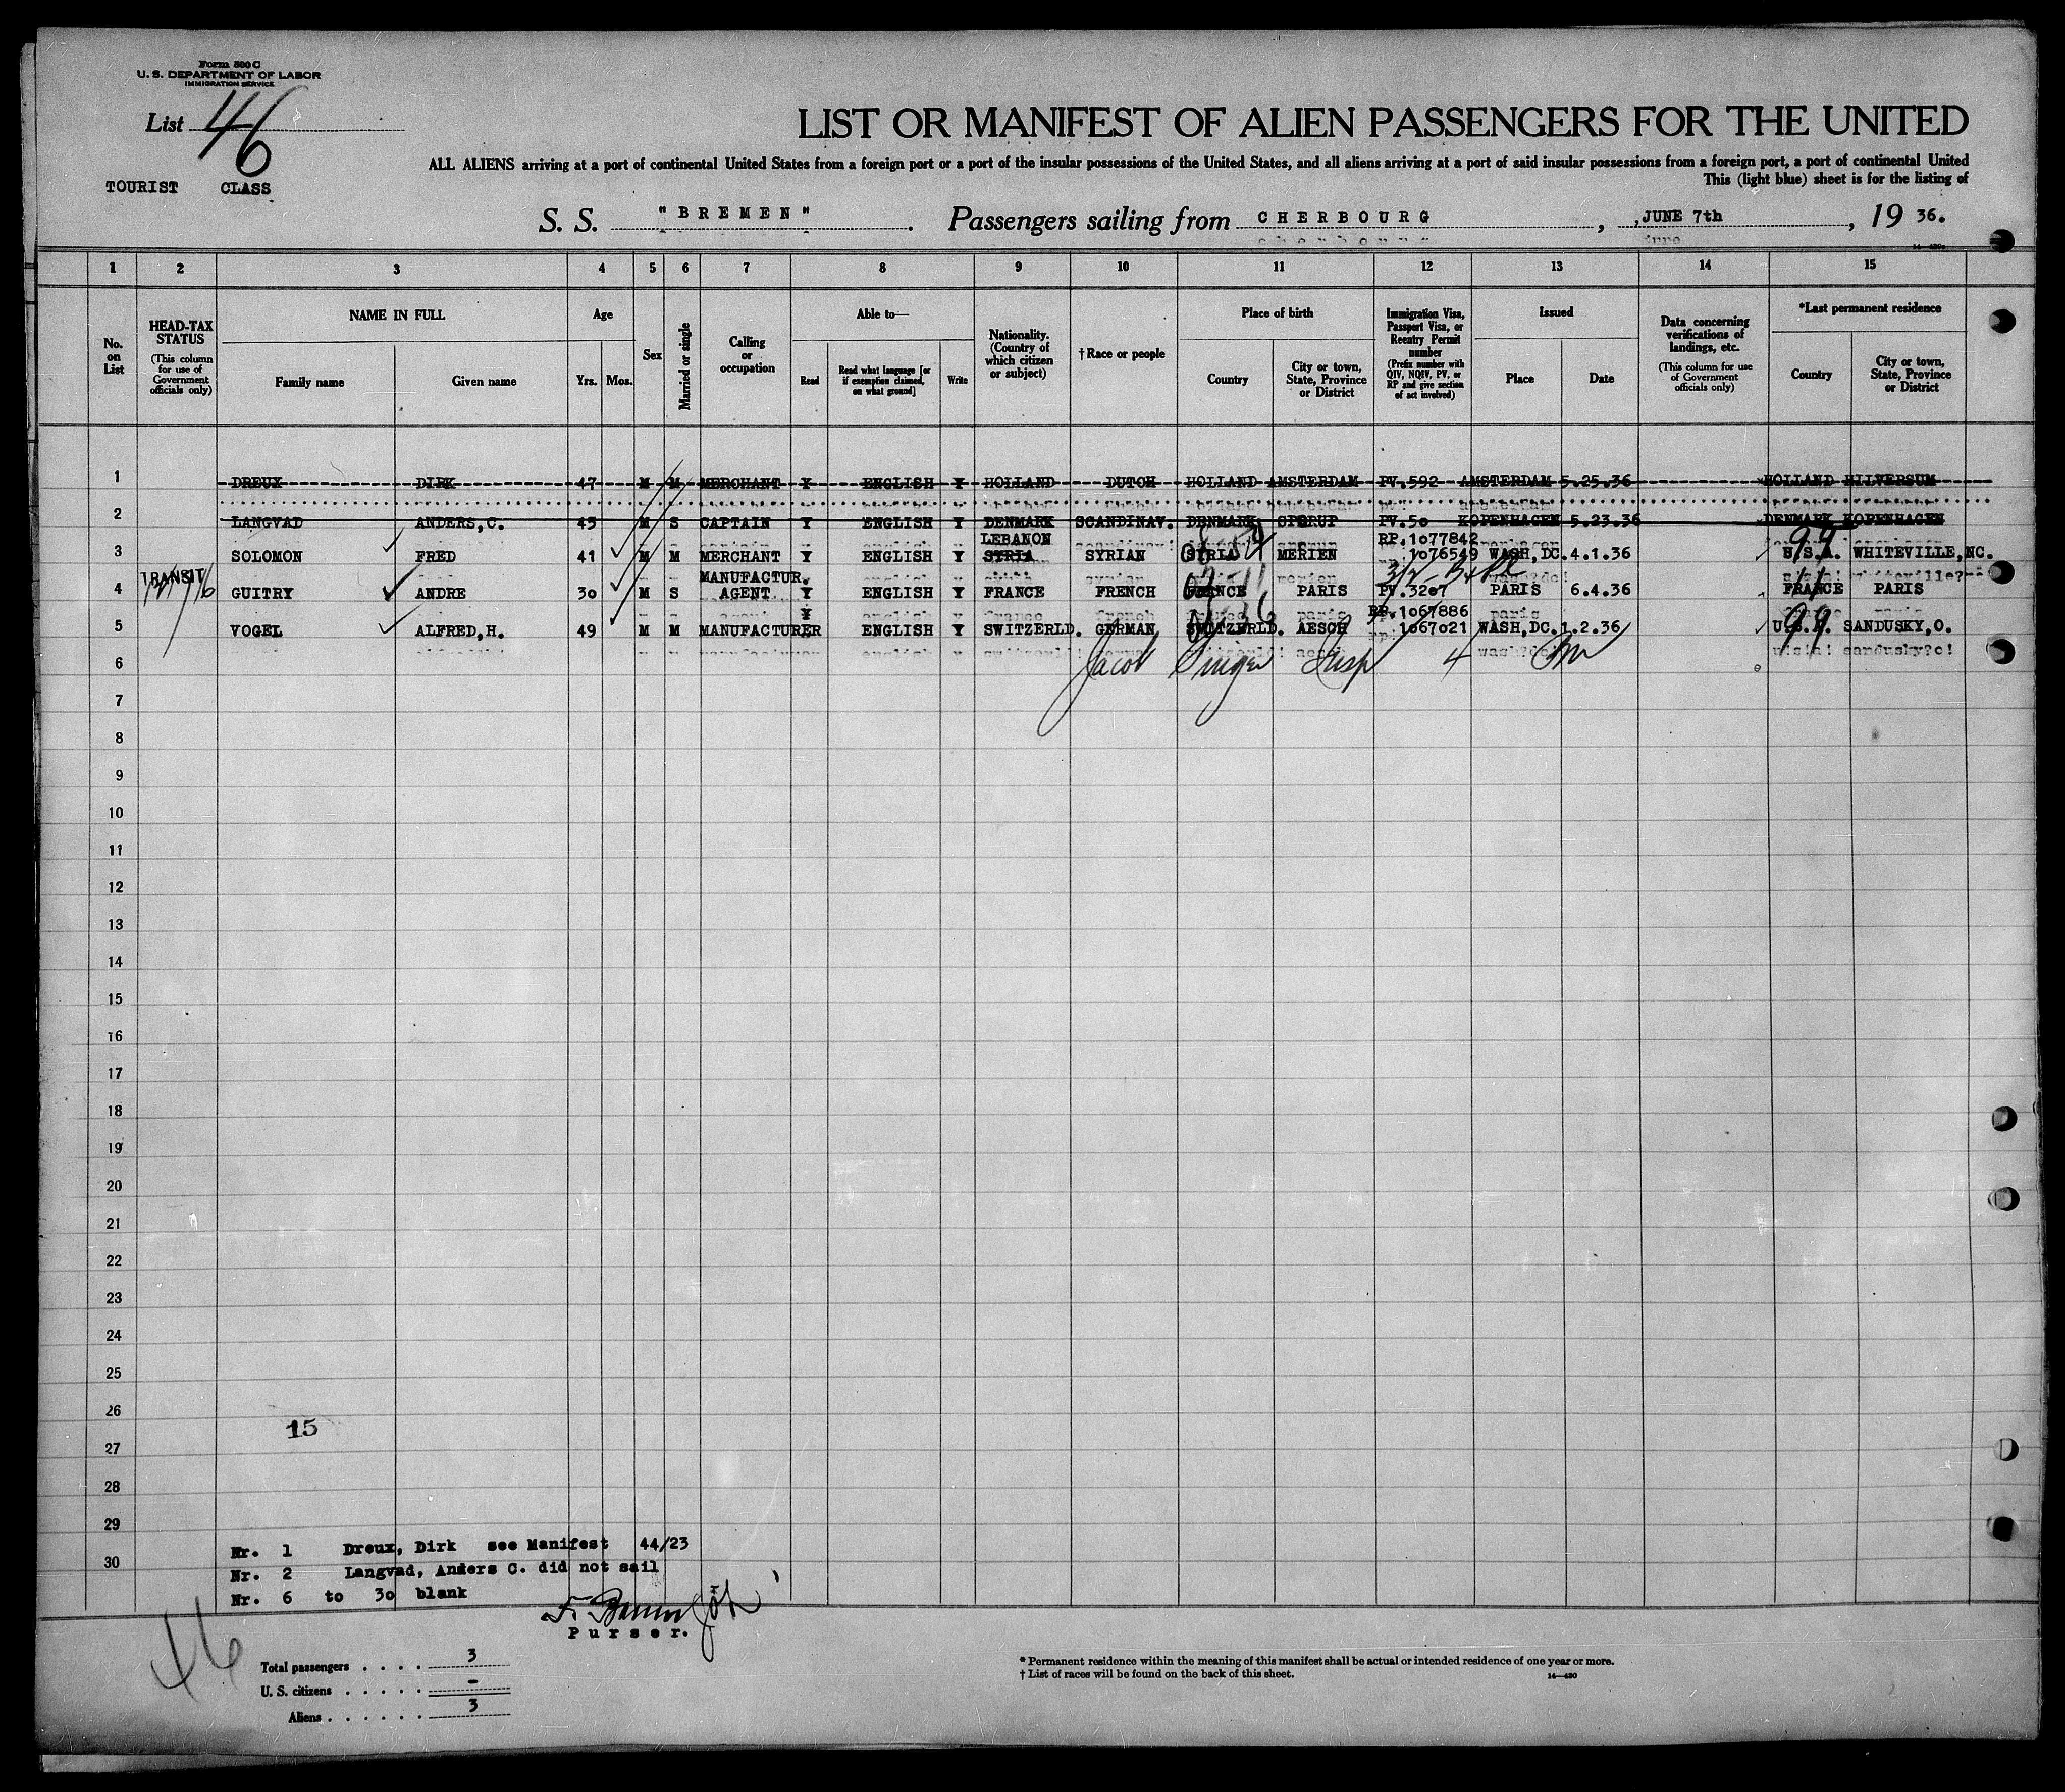 Form 500 C
U. S. DEPARTMENT OF LABOR
IMMIGRATION SERVICE
List 46
LIST OR MANIFEST OF ALIEN PASSENGERS FOR THE UNITED
ALL ALIENS arriving at a port of continental United States from a foreign port or a port of the insular possessions of the United States, and all aliens arriving at a port of said insular possessions from a foreign port, a port of continental United
TOURIST CLASS
This (light blue) sheet is for the listing of
S. S. "BREMEN". Passengers sailing from CHERBOURG, JUNE 7th, 19 36.
1 2 3 4 5 6 7 8 9 10 11 12 13 14 15
No. on List
HEAD-TAX STATUS
(This column for use of Government officials only)
NAME IN FULL
Family name
Given name
Age
Yrs.
Mos.
Sex
Married or single
Calling or occupation
Able to—
Read
Read what language [or if exemption claimed, on what ground]
Write
Nationality. (Country of which citizen or subject)
†Race or people
Place of birth
Country
City or town, State, Province or District
Immigration Visa, Passport Visa, or Reentry Permit number
(Prefix number with QIV, NQIV, PV, or RP and give section of act involved)
Issued
Place
Date
Data concerning verifications of landings, etc.
(This column for use of Government officials only)
*Last permanent residence
Country
City or town, State, Province or District
1 DREUX DIRK 47 M M MERCHANT Y ENGLISH Y HOLLAND DUTCH HOLLAND AMSTERDAM PV.592 AMSTERDAM 5.25.36 HOLLAND HILVERSUM
2 LANGVAD ANDERS,C. 45 M S CAPTAIN Y ENGLISH Y DENMARK SCANDINAV. DENMARK SPORUP PV.50 KOPENHAGEN 5.23.36 DENMARK KOPENHAGEN
LEBANON RP.1077842
3 SOLOMON FRED 41 M M MERCHANT Y ENGLISH Y SYRIA SYRIAN SYRIA MERIEN 1076549 WASH,DC.4.1.36 99 U.S.A. WHITEVILLE,NC.
TRANSIT MANUFACTUR.
4 GUITRY ANDRE 30 M S AGENT Y ENGLISH Y FRANCE FRENCH FRANCE PARIS PV.3207 PARIS 6.4.36 FRANCE PARIS
RP.1067886
5 VOGEL ALFRED,H. 49 M M MANUFACTURER ENGLISH Y SWITZERLD. GERMAN SWITZERLD. AESCH 1067021 WASH,DC.1.2.36 99 U.S.A. SANDUSKY,O.
6 Jacob Singer Insp 4
7
8
9
10
11
12
13
14
15
16
17
18
19
20
21
22
23
24
25
26
15
27
28
29
30
Nr. 1 Dreux, Dirk see Manifest 44/23
Nr. 2 Langvad, Anders C. did not sail
Nr. 6 to 30 blank
Purser.
46
Total passengers . . . . 3
U. S. citizens . . . . . –
Aliens . . . . . . 3
* Permanent residence within the meaning of this manifest shall be actual or intended residence of one year or more.
† List of races will be found on the back of this sheet.
14—430